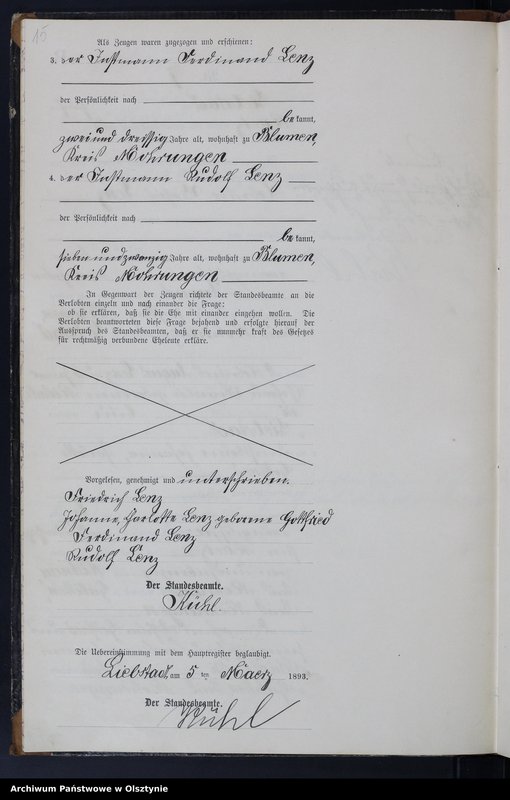 15
Als Zeugen waren zugezogen und erschienen:
3. der Instmann Ferdinand Lenz
der Persönlichkeit nach
be kannt,
zweiunddreissig Jahre alt, wohnhaft zu Blumen,
Kreis Mohrungen
4. der Instmann Rudolf Lenz
der Persönlichkeit nach
be kannt,
siebenundzwanzig Jahre alt, wohnhaft zu Blumen,
Kreis Mohrungen
In Gegenwart der Zeugen richtete der Standesbeamte an die
Verlobten einzeln und nach einander die Frage:
ob sie erklären, daß sie die Ehe mit einander eingehen wollen. Die
Verlobten beantworteten diese Frage bejahend und erfolgte hierauf der
Ausspruch des Standesbeamten, daß er sie nunmehr kraft des Gesetzes
für rechtmäßig verbundene Eheleute erkläre.
Vorgelesen, genehmigt und unterschrieben.
Friedrich Lenz
Johanne, Charlotte Lenz geborene Gottfried
Ferdinand Lenz
Rudolf Lenz
Der Standesbeamte.
Kühl.
Die Uebereinstimmung mit dem Hauptregister beglaubigt.
Liebstadt, am 5 ten Maerz 1893.
Der Standesbeamte.
Kühl
Archiwum Państwowe w Olsztynie